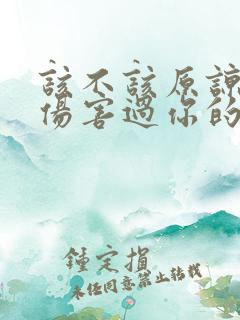 該不該原諒
傷害過你的
鍾定損
未任同意禁止轉載